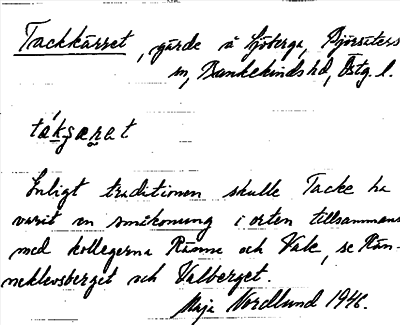 Tackkärret, gärde å Sjöberga, Björsäters
sn, Bankekinds hd, Östg. l.
tákʂærat
Enligt traditionen skulle Tacke ha
varit en småkonung i orten tillsammans
med kollegerna Ränne och Vale, se Rän-
neklevsberget och Valberget.
Maja Nordlund 1946.